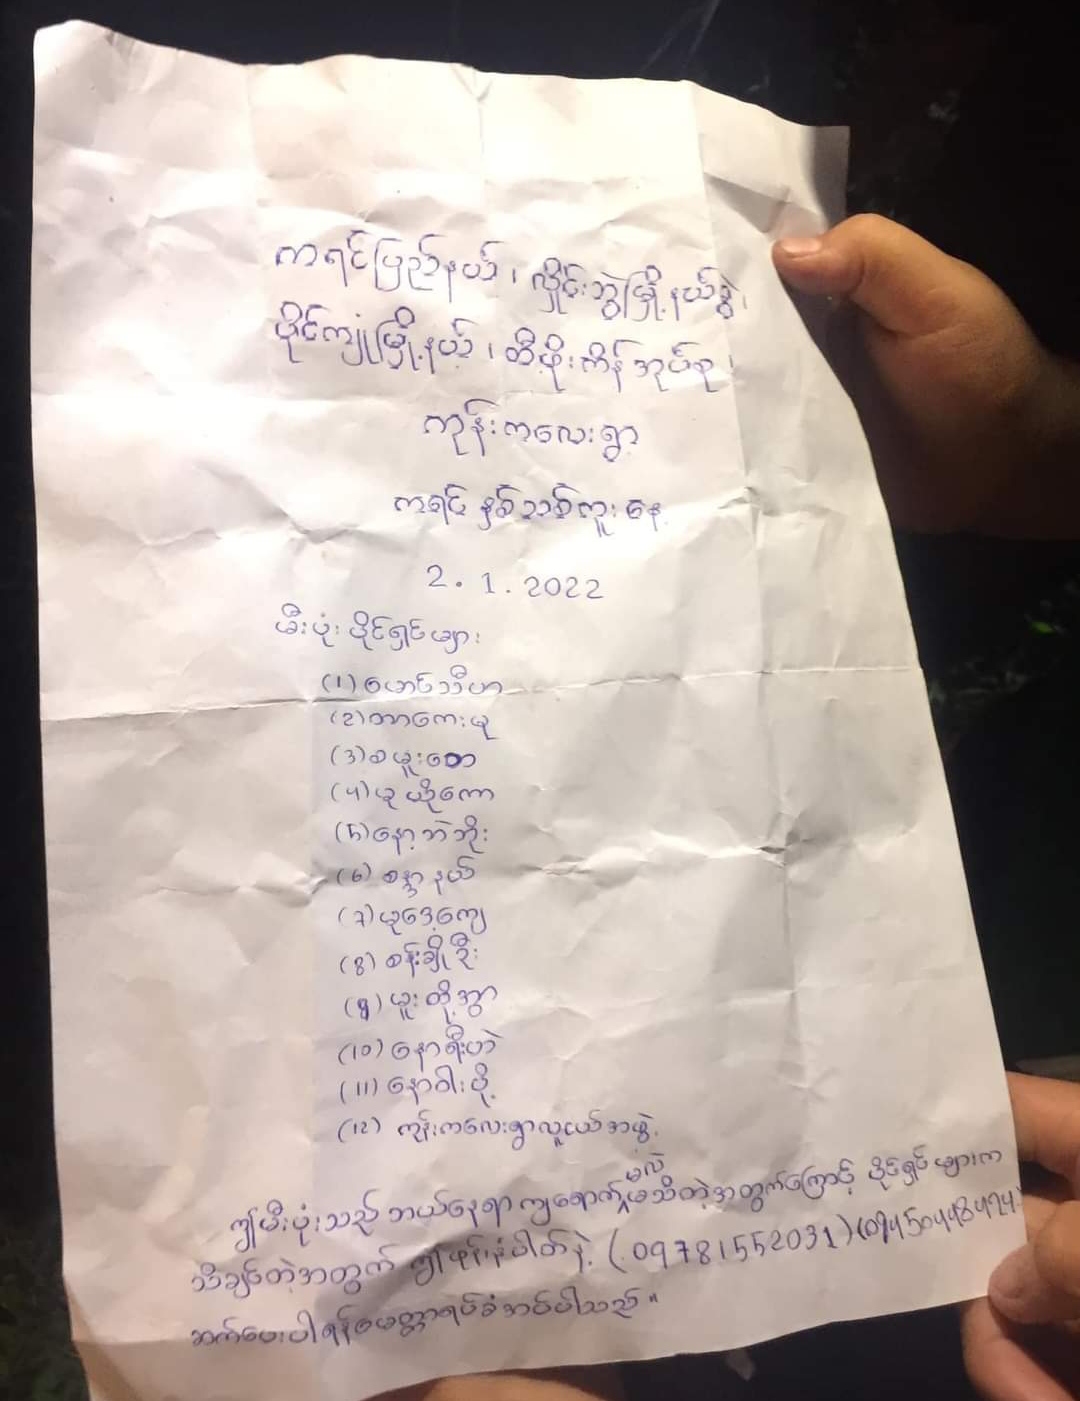 ကရင်ပြည်နယ်၊ လှိုင်းဘွဲမြို့နယ်ခွဲ၊
ပိုင်ကျုံမြို့နယ်၊ တီဖိုးကိန်အုပ်စု၊
ကုန်းကလေးရွာ
ကရင် နှစ်သစ်ကူး နေ့
2.1.2022
မီးပုံး ပိုင်ရှင်များ
(1) မောင်သီဟ
(2) တာကေးမူ
(3) စမူးတော
(4) မူယိုကော
(5) နော့ဘဲဘိုး
(6) စန္ဒာနယ်
(7) မူဒေ့ကျေ
(8) စန်းချိုဦး
(9) မူးတို့အွာ
(10) နော်ရီးဟဲ
(11) နော်ဝါးပို့
(12) ကုန်းကလေးရွာလူငယ်အဖွဲ့
ဤမီးပုံးသည် ဘယ်နေရာ ကျရောက်မှန်းမသိတဲ့အတွက်ကြောင့် ပိုင်ရှင်များက
သိချင်တဲ့အတွက် ဤဖုန်းနံပါတ်နဲ့ (09781552031)
ဆက်ပေးပါရန်မေတ္တာရပ်ခံအပ်ပါသည်။